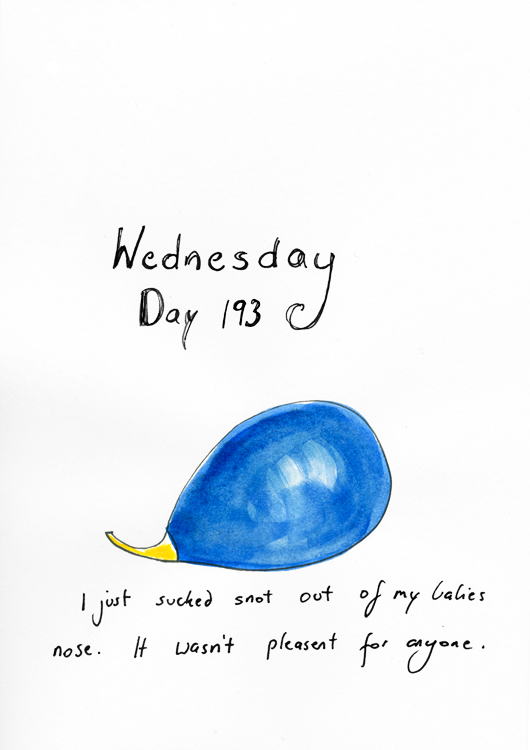 Wednesday
Day 193
I just sucked snot out of my babies
nose. It wasn't pleasent for anyone.